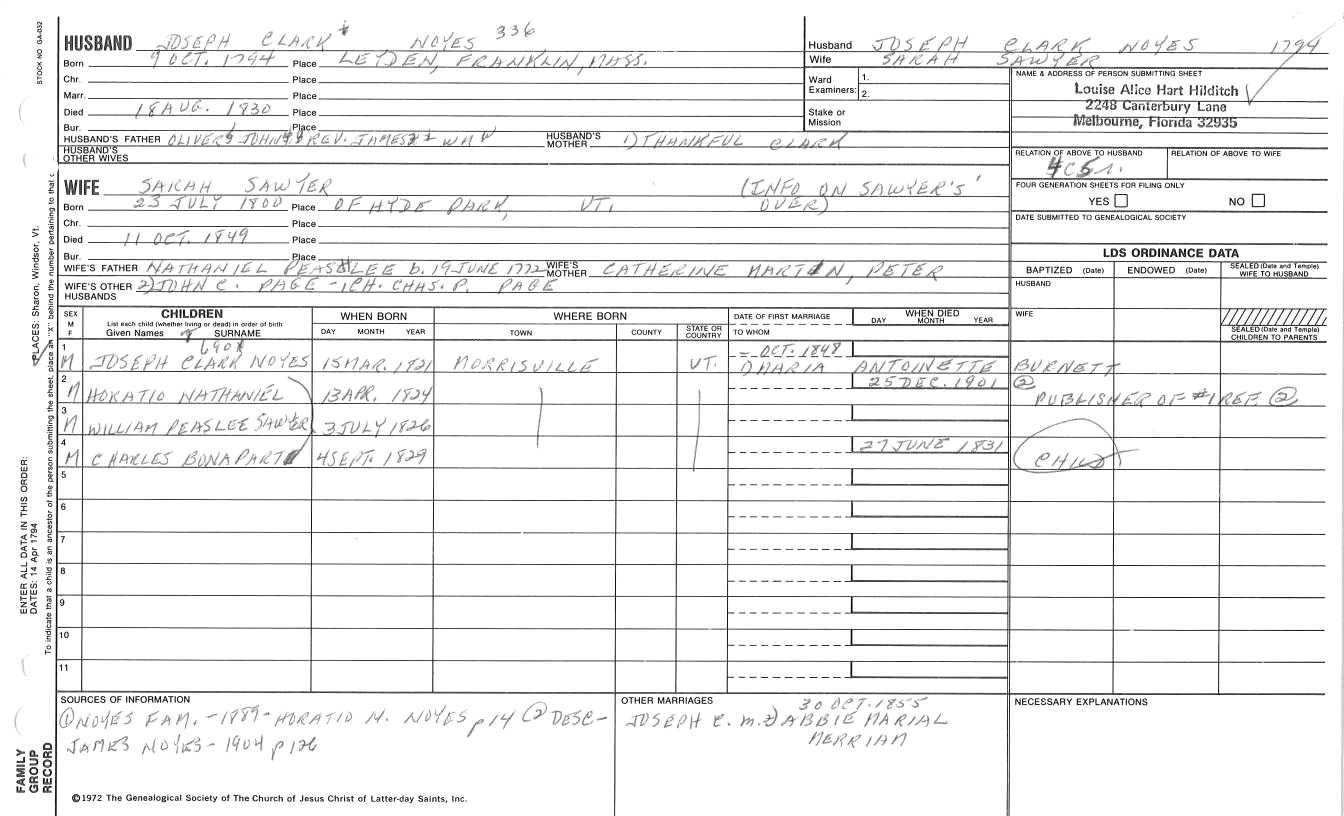 STOCK NO GA-032
HUSBAND JOSEPH CLARK NOYES 336
Born 9 OCT. 1794 Place LEYDEN, FRANKLIN, MASS.
Chr. Place
Marr. Place
Died 18 AUG. 1830 Place
Bur. Place
HUSBAND'S FATHER OLIVER JOHN REV. JAMES WM HUSBAND'S MOTHER 1) THANKFUL CLARK
HUSBAND'S OTHER WIVES
Husband JOSEPH CLARK NOYES 1794
Wife SARAH SAWYER
Ward Examiners: 1.
2.
Stake or Mission
NAME & ADDRESS OF PERSON SUBMITTING SHEET
Louise Alice Hart Hilditch
2248 Canterbury Lane
Melbourne, Florida 32935
RELATION OF ABOVE TO HUSBAND RELATION OF ABOVE TO WIFE
FOUR GENERATION SHEETS FOR FILING ONLY
YES NO
DATE SUBMITTED TO GENEALOGICAL SOCIETY
WIFE SARAH SAWYER (INFO ON SAWYER'S OVER)
Born 23 JULY 1800 Place OF HYDE PARK, VT.
Chr. Place
Died 11 OCT. 1849 Place
Bur. Place
WIFE'S FATHER NATHANIEL PEASLEE b. 19 JUNE 1772 WIFE'S MOTHER CATHERINE MARTIN, PETER
WIFE'S OTHER HUSBANDS 2) JOHN C. PAGE - 1CH. CHAS. P. PAGE
LDS ORDINANCE DATA
BAPTIZED (Date) ENDOWED (Date) SEALED (Date and Temple) WIFE TO HUSBAND
HUSBAND
WIFE
SEALED (Date and Temple) CHILDREN TO PARENTS
SEX M F
CHILDREN
List each child (whether living or dead) in order of birth
Given Names SURNAME
WHEN BORN
DAY MONTH YEAR
WHERE BORN
TOWN COUNTY STATE OR COUNTRY
DATE OF FIRST MARRIAGE
TO WHOM
WHEN DIED
DAY MONTH YEAR
1 M JOSEPH CLARK NOYES 15 MAR. 1821 MORRISVILLE VT. - OCT. 1848 1) MARIA ANTOINETTE BURNETT
2 M HORATIO NATHANIEL 13 APR. 1824 25 DEC. 1901 ② PUBLISHER OF #1 REF. ②
3 M WILLIAM PEASLEE SAWYER 3 JULY 1826
4 M CHARLES BONAPART 4 SEPT. 1829 27 JUNE 1831 CHILD
5
6
7
8
9
10
11
SOURCES OF INFORMATION
① NOYES FAM. - 1889 - HORATIO N. NOYES p 14 ② DESC-
JAMES NOYES - 1904 p 126
OTHER MARRIAGES
30 OCT. 1855
JOSEPH C. m. 2) ABBIE MARIAL
MERRIAM
NECESSARY EXPLANATIONS
©1972 The Genealogical Society of The Church of Jesus Christ of Latter-day Saints, Inc.
PLACES: Sharon, Windsor, Vt.
ENTER ALL DATA IN THIS ORDER:
DATES: 14 Apr 1794
To indicate that a child is an ancestor of the person submitting the sheet, place an "X" behind the number pertaining to that c
FAMILY GROUP RECORD